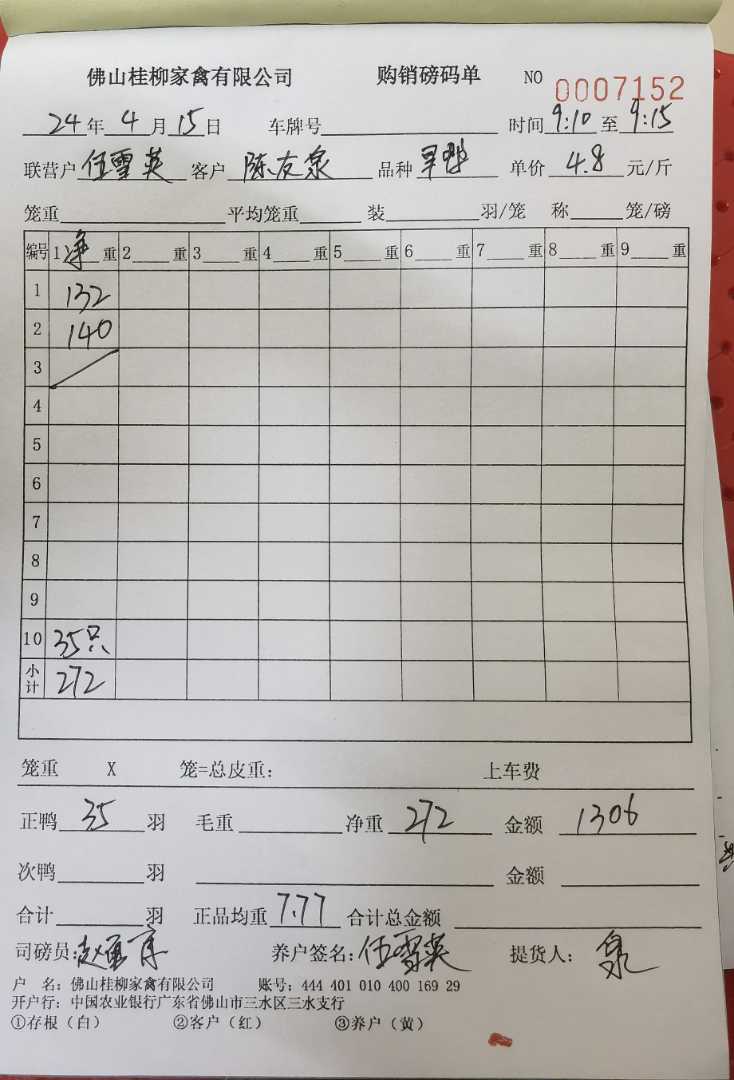 佛山桂柳家禽有限公司 购销磅码单 NO 0007152
24年4月15日 车牌号 时间9:10至9:15
联营户任雪英 客户陈友泉 品种 单价4.8元/斤
笼重 平均笼重 装 羽/笼 称 笼/磅
编号 1净重 2 重 3 重 4 重 5 重 6 重 7 重 8 重 9 重
1 132
2 140
3
4
5
6
7
8
9
10 35只
小计 272
笼重 X 笼=总皮重： 上车费
正鸭35羽 毛重 净重272 金额1306
次鸭 羽 金额
合计 羽 正品均重7.77 合计总金额
司磅员: 养户签名:任雪英 提货人：泉
户 名：佛山桂柳家禽有限公司 账号：444 401 010 400 169 29
开户行：中国农业银行广东省佛山市三水区三水支行
①存根（白） ②客户（红） ③养户（黄）